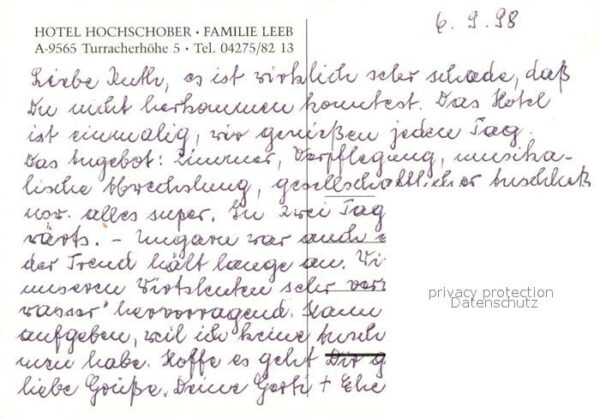 HOTEL HOCHSCHOBER · FAMILIE LEEB
A-9565 Turracherhöhe 5 · Tel. 04275/82 13
6.9.98
Liebe Ruth, es ist wirklich sehr schade, daß
Du nicht herkommen konntest. Das Hotel
ist einmalig, wir genießen jeden Tag.
Das Angebot: Zimmer, Verpflegung, musika-
lische Abwechslung, gesellschaftlicher Anschluß
usw. alles super. In zwei Tag
wärts. – Ungarn war auch
der Trend hält lange an. Wi
unseren Wirtsleuten sehr ver
wasser" hervorragend. Kann
aufgeben, weil ich keine Ansch
men habe. Hoffe es geht Dir g
liebe Grüße, Deine Gerti + Ehe
privacy protection
Datenschutz